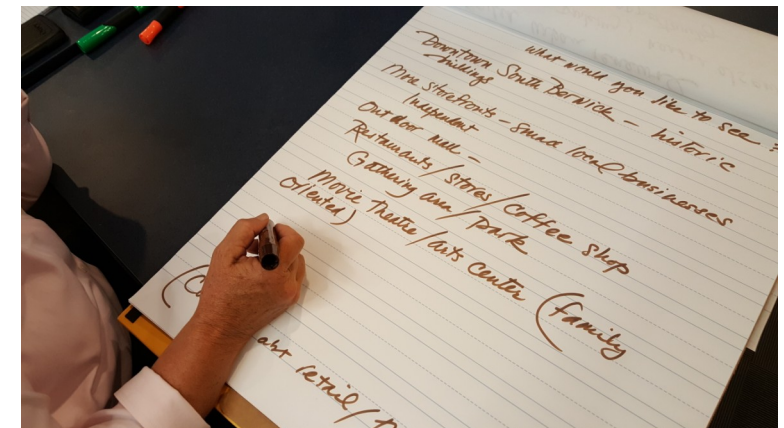 What would you like to see?
Downtown South Berwick - historic
buildings
More storefronts - small local businesses
Independent
Outdoor mall -
Restaurants / stores / coffee shop
Gathering area / park
Movie Theatre / arts center (family
oriented)
retail /